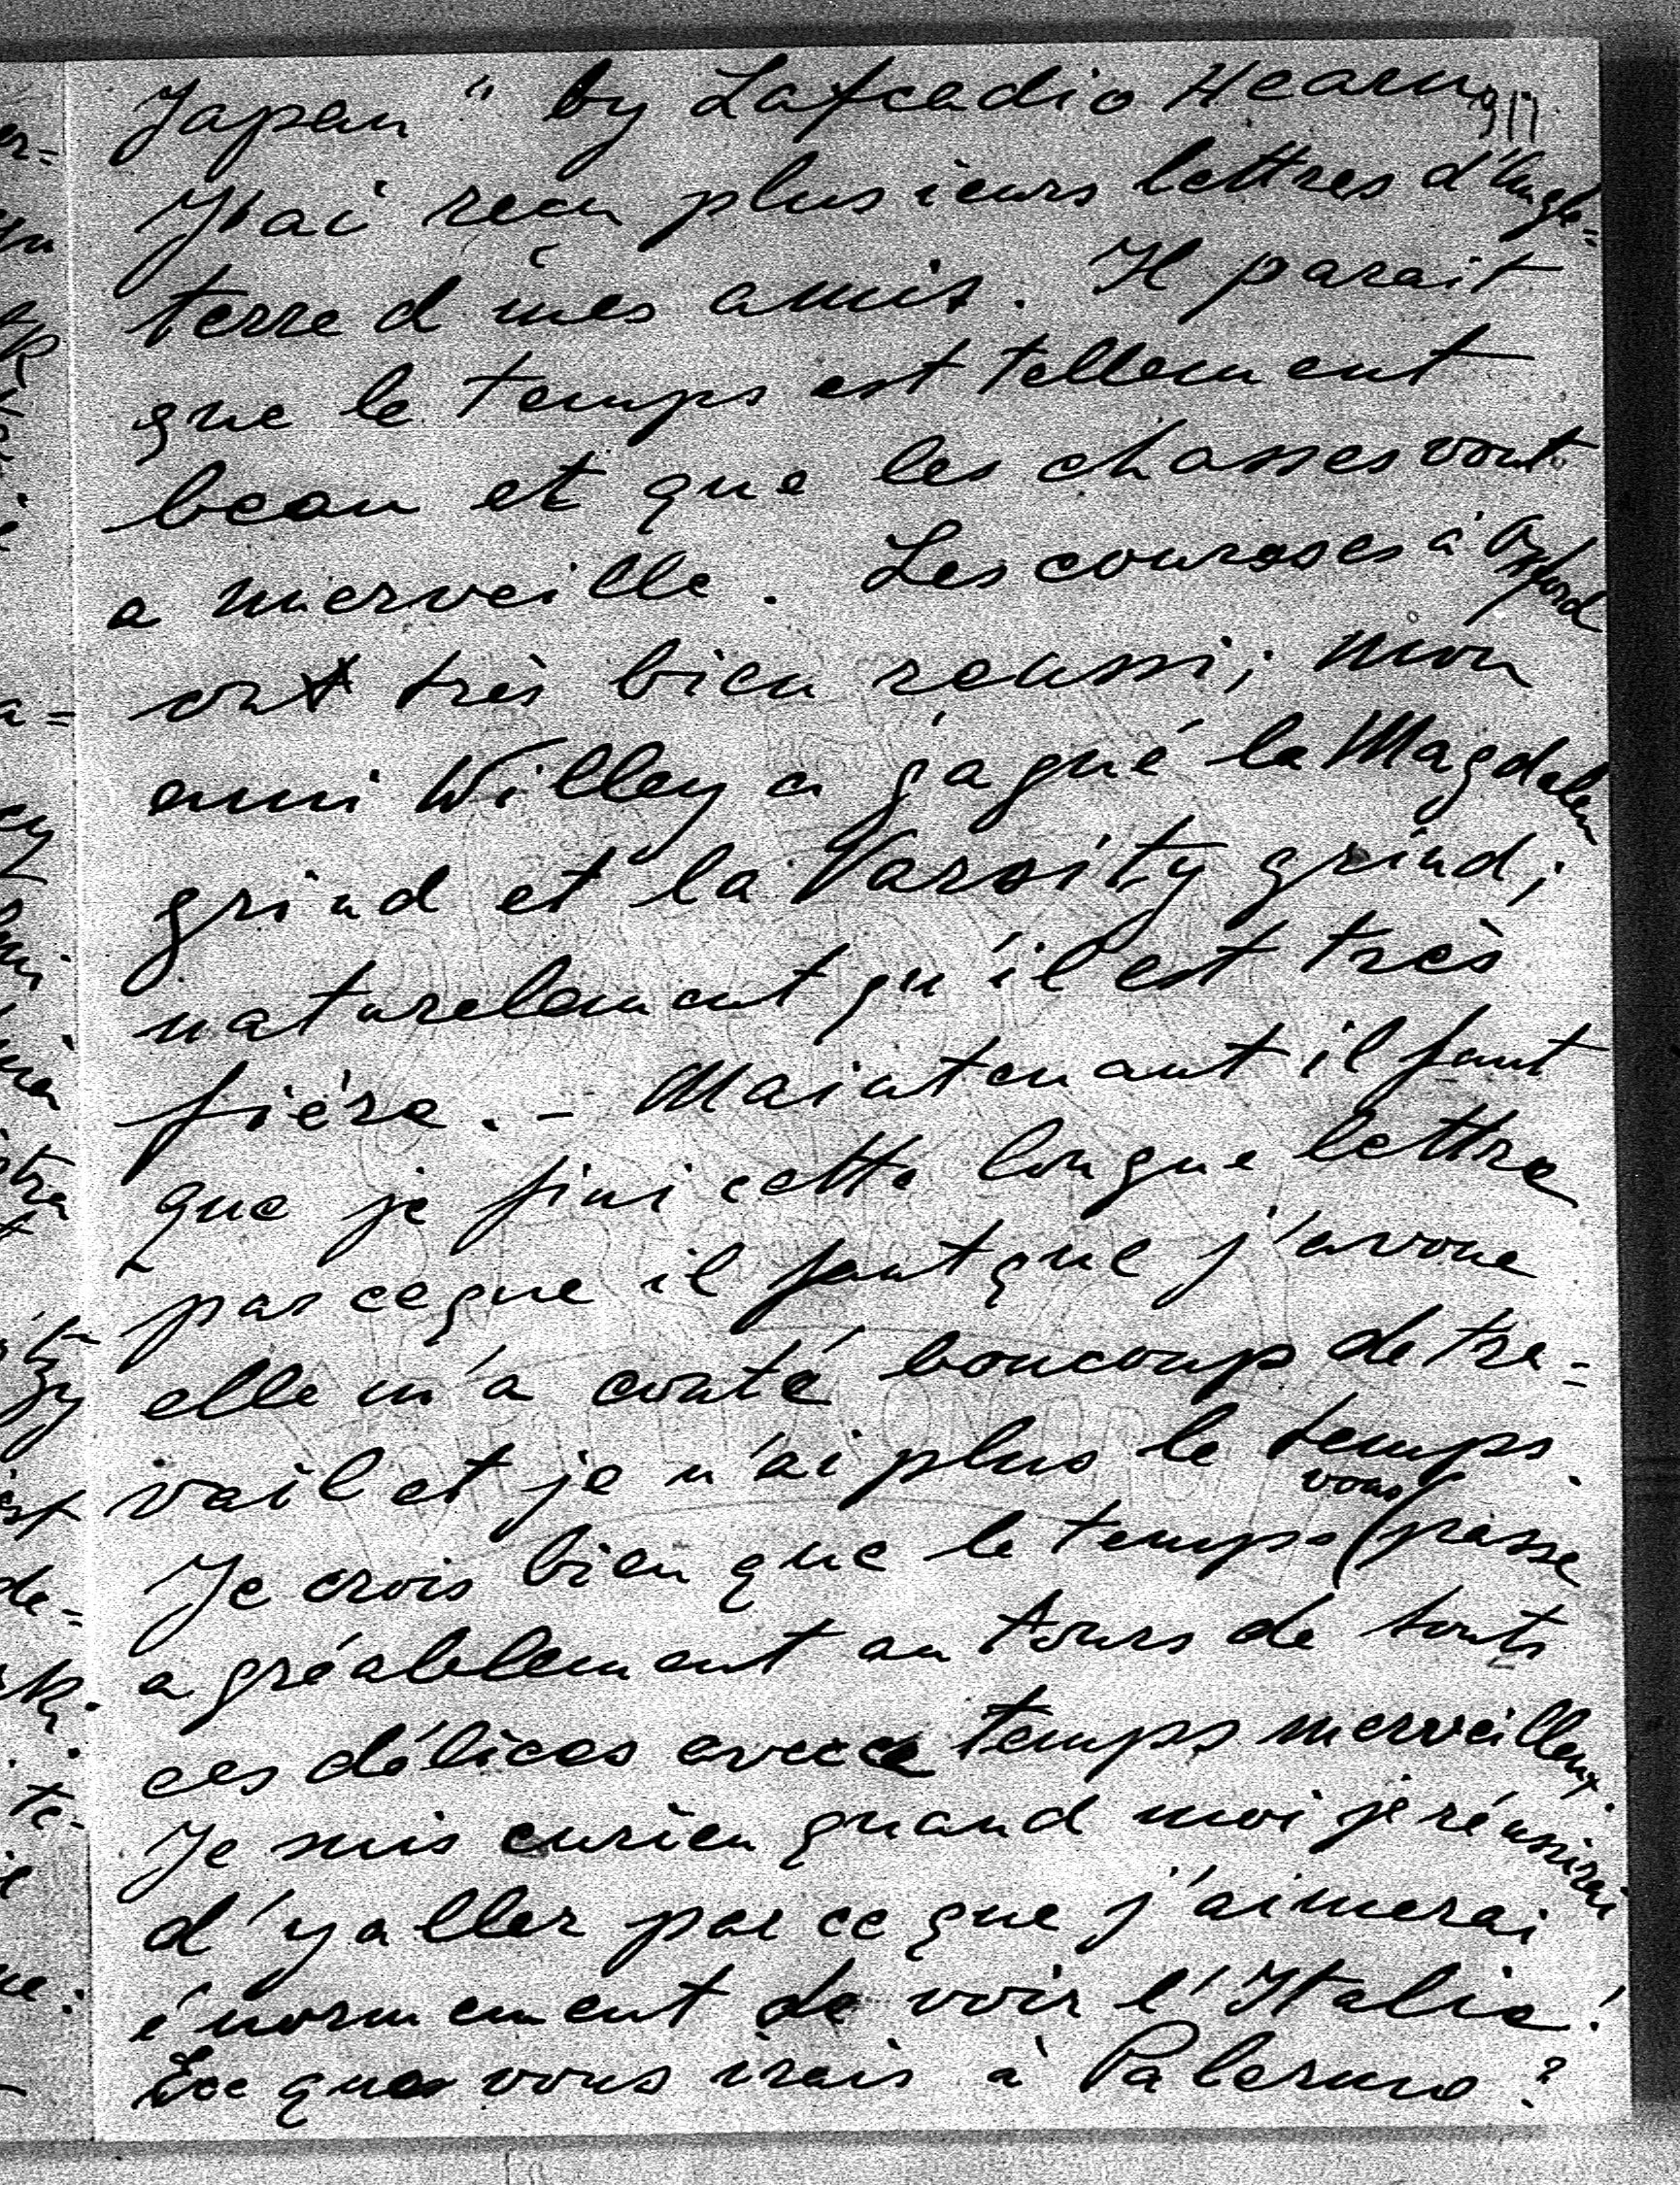 Japan" by Lafcadio Hearn.
J'ai reçu plusieurs lettres d'Angle=
terre d mes amis. Il parait
que le temps est tellement
beau et que les chasses vont
a merveille. Les coursses à Oxford
ont très bien reussi; mon
ami Willey a gagné la Magdalen
grind et la Varsity grind;
naturelement qu'il est très
fière. - Maintenant il faut
que je fini cette longue lettre
parceque il faut que j'avoue
elle m'a couté boucoup de tra=
vail et je n'ai plus le temps.
Je crois bien que le temps vous passe
agréablement au tours de touts
ces délices avec ce temps merveilleux.
Je suis curien quand moi je réussirai
d'y aller par ce que j'aimerai
énormement de voir l'Italie!
Ece que vous irais à Palermo?